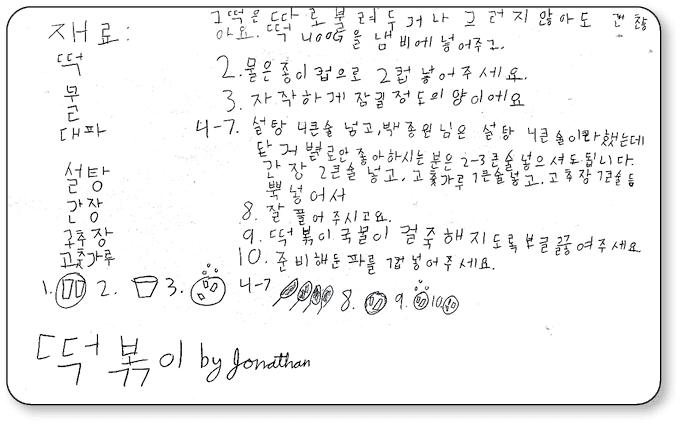 재료:
떡
물
대파
설탕
간장
고추장
고춧가루
그떡은 따로 불려두거나 그러지 않아도 괜찮
아요. 떡 400G을 냄비에 넣어주고.
2. 물은 종이컵으로 2컵 넣어주세요.
3. 자작하게 잠길정도의 양이에요
4-7. 설탕 4큰술 넘고, 백종원님은 설탕 4큰술이라했는데
단거 별로안좋아하시는 분은 2-3큰술넣으셔도됩니다.
간장 2큰술 넣고, 고춧가루 1큰술넣고, 고추장 1큰술 듬
뿍 넣어서
8. 잘 풀어 주시고요.
9. 떡볶이 국물이 걸죽해지도록 보글 끓여주세요
10. 준비해둔 파를 1컵 넣어주세요.
1. 2. 3. 4-7 8. 9. 10.
떡볶이 by Jonathan